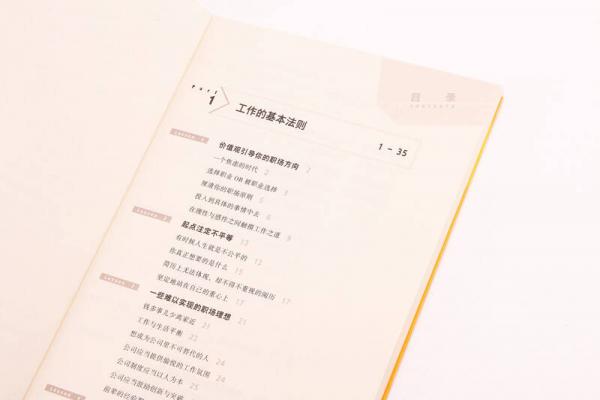 目 录
CONTENTS
Part
1
工作的基本法则
1 - 35
价值观引导你的职场方向 2
一个焦虑的时代 2
选择职业 OR 被职业选择 3
厘清你的职场原则 5
投入到具体的事情中去 6
在理性与感性之间触摸工作之道 9
起点注定不平等 13
有时候人生就是不公平的 13
你真正想要的是什么 15
简历上无法体现,却不得不重视的阅历 17
坚定地站在自己的重心上 17
一些难以实现的职场理想 21
钱多事儿少离家近 21
工作与生活平衡 22
想成为公司里不可替代的人 24
公司应当提供愉悦的工作氛围 24
公司制度应当以人为本 25
公司应当激励创新与突破